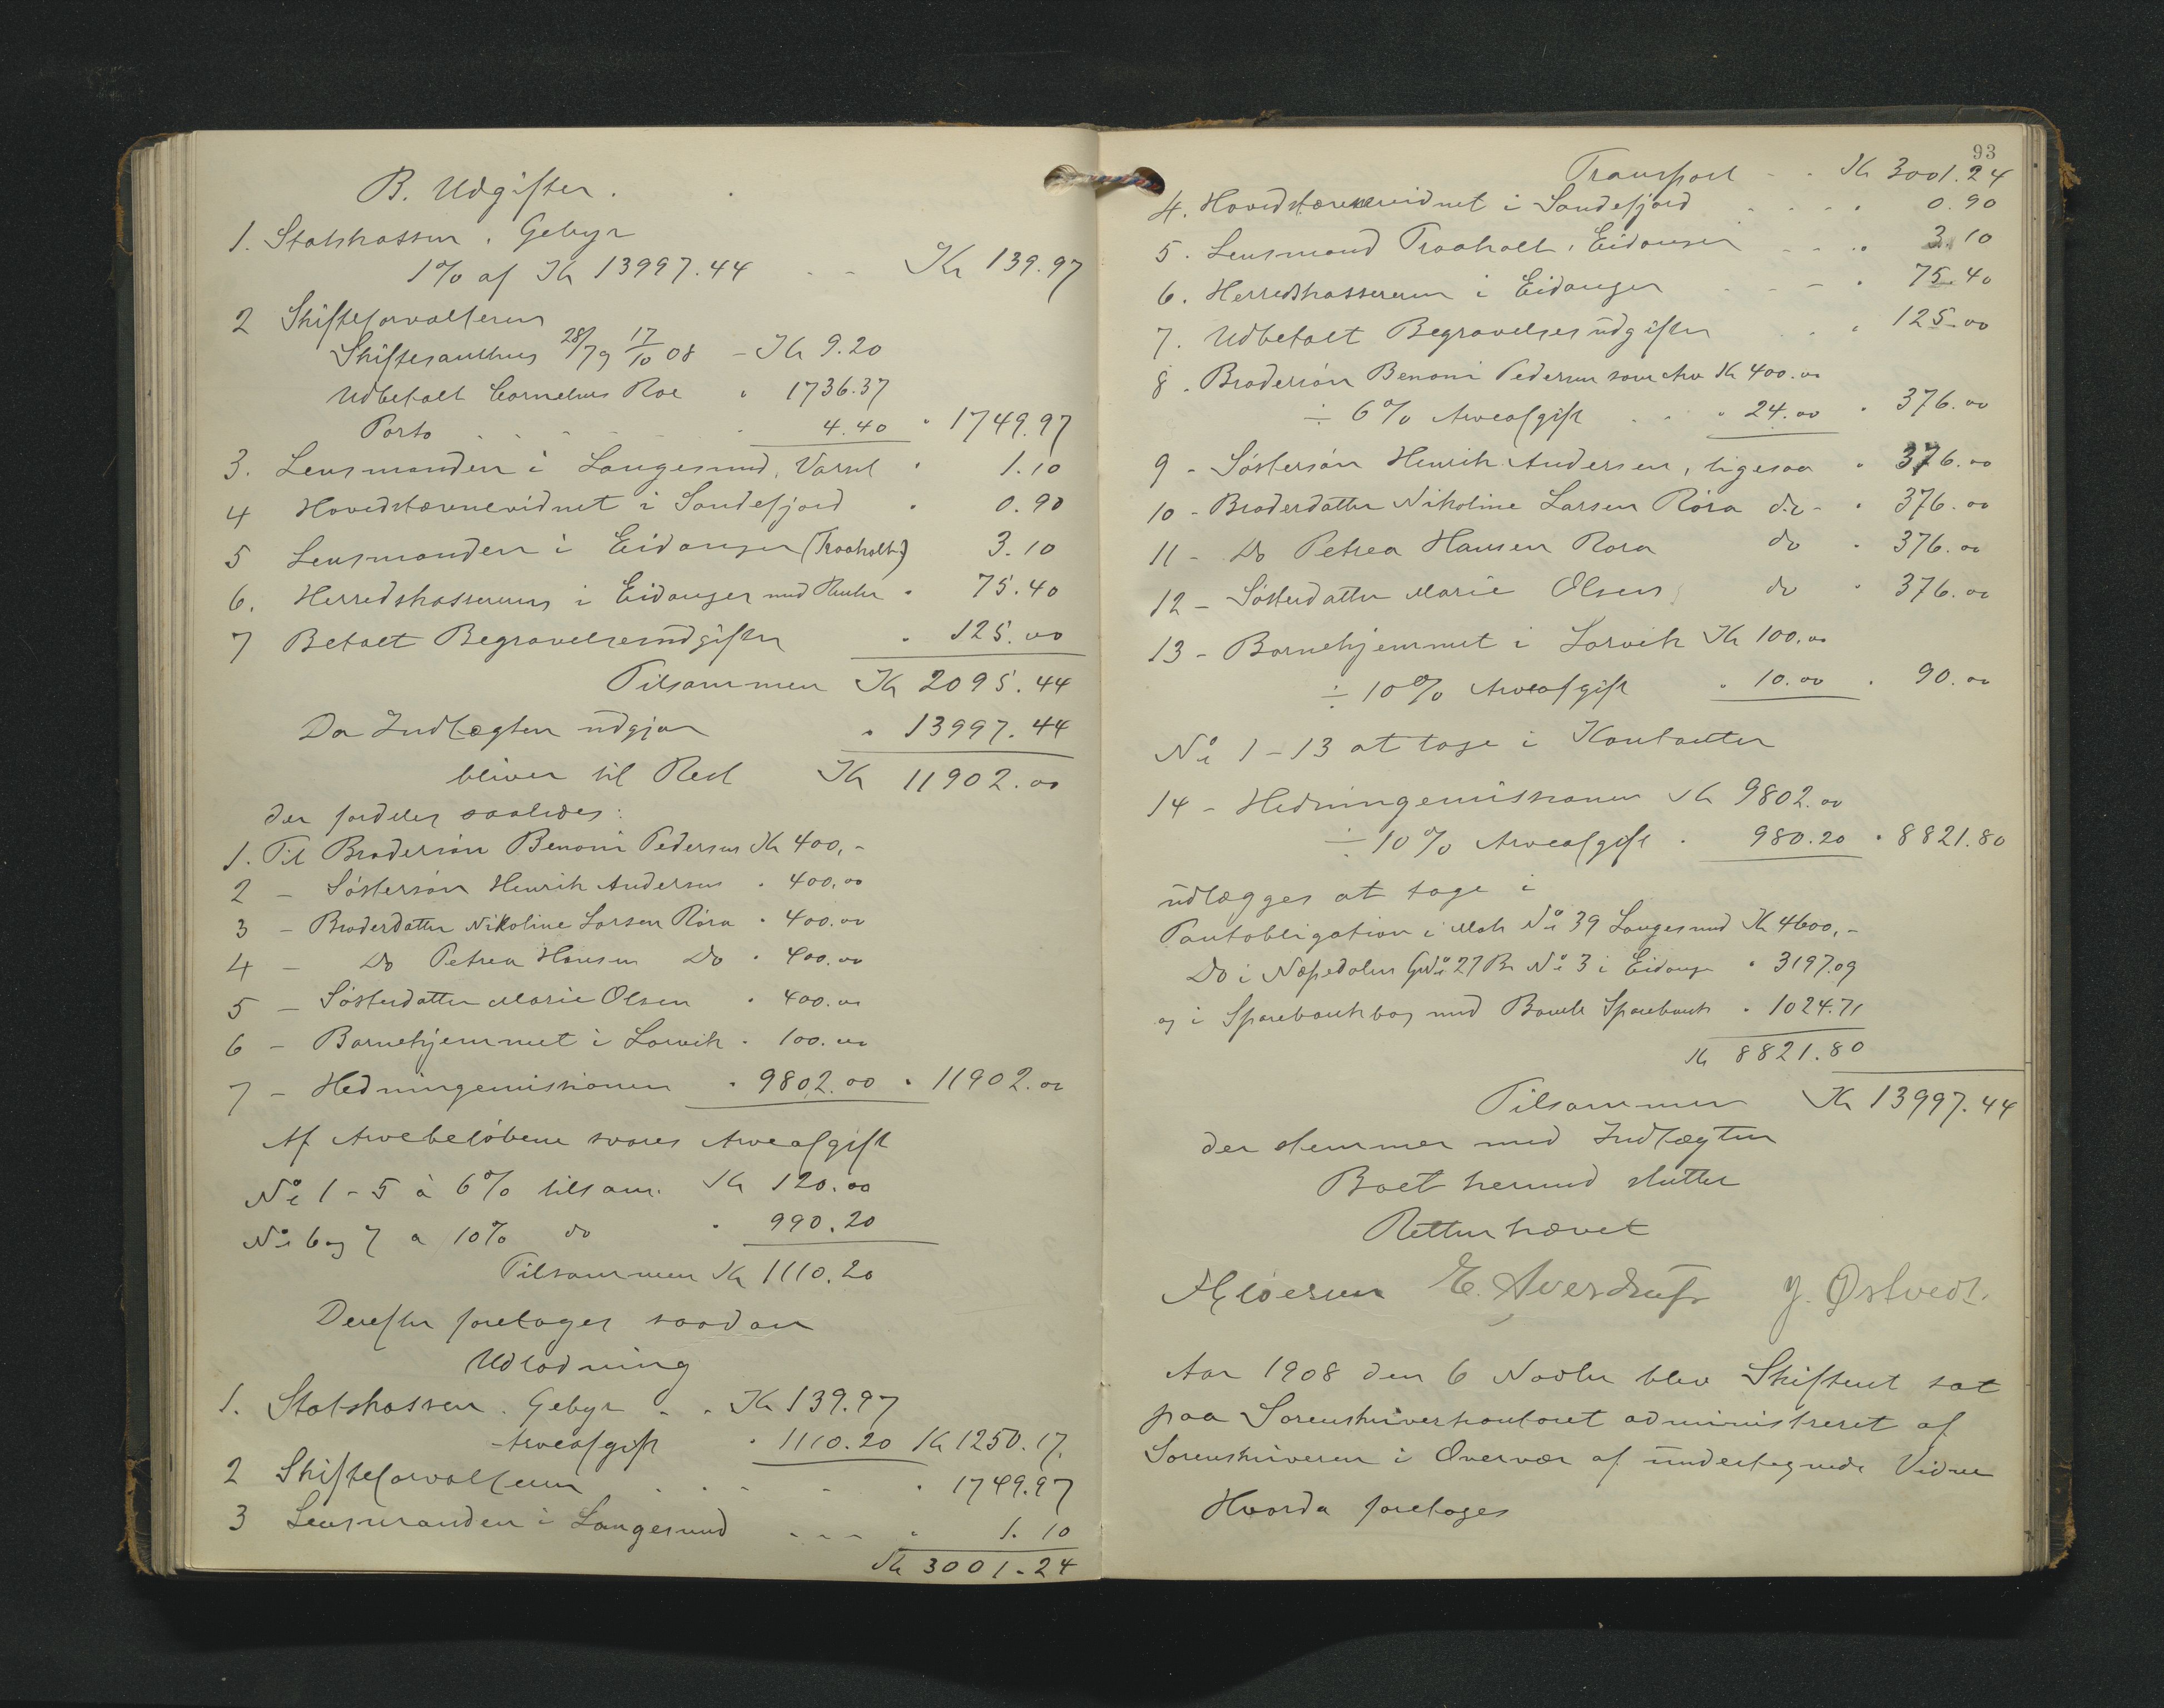 B. Udgifter.
1. Statskassen. Gebyr
1% af Kr 13997.44 - - Kr 139.97
2 Skifteforvalteren
Skiftesamling 28/7 og 17/10 08 - Kr 9.20
Udbetalt Cornelius Roe " 1736.37
Porto - - - - - 4.40 " 1749.97
3. Lensmanden i Langesund, Varsel " 1.10
4 Hovedstævnevidnet i Sandefjord " 0.90
5 Lensmanden i Eidanger (Traaholt) 3.10
6. Herredskassereren i Eidanger med Renter " 75.40
7 Betalt Begravelsesudgifter " 125.00
Tilsammen Kr 2095.44
Da Indtægten udgjør " 13997.44
bliver til Rest Kr 11902.00
der fordeles saaledes:
1. Til Brodersön Benoni Pedersen Kr 400,-
2 - Söstersön Henrik Andersen " 400.00
3 - Broderdatter Nikoline Larsen Röra " 400.00
4 - Do Petrea Hansen Do " 400.00
5 - Sösterdatter Marie Olsen " 400.00
6 - Barnehjemmet i Larvik " 100.00
7 - Hedningemissionen " 9802.00 " 11902.00
Af Arvebeløbene svares Arveafgift
No 1-5 à 6% tilsam. Kr 120.00
No 6 og 7 a 10% do " 990.20
Tilsammen Kr 1110.20
Derefter foretages saadan
Udlodning
1. Statskassen. Gebyr - - Kr 139.97
Arveafgift " 1110.20 Kr 1250.17.
2 Skifteforvalteren - - - - " 1749.97
3 Lensmanden i Langesund - - - " 1.10
Kr 3001.24
93
Transport - - Kr 3001.24
4. Hovedstævnevidnet i Sandefjord - - - - 0.90
5. Lensmand Traaholt, Eidanger - - - 3.10
6. Herredskassereren i Eidanger - - - " 75.40
7. Udbetalt Begravelsesudgifter - " 125.00
8. Brodersön Benoni Pedersen som Arv Kr 400.00
÷ 6% Arveafgift - - " 24.00 " 376.00
9 - Söstersön Henrik Andersen, ligesaa " 376.00
10 - Broderdatter Nikoline Larsen Röra do - " 376.00
11 - Do Petrea Hansen Rora do " 376.00
12 - Sösterdatter Marie Olsen do " 376.00
13 - Barnehjemmet i Larvik Kr 100.00
÷ 10% Arveafgift " 10.00 " 90.00
No 1-13 at tage i Kontanter
14 - Hedningemissionen Kr 9802.00
÷ 10% Arveafgift " 980.20 " 8821.80
udlægges at tage i
Pantobligation i Matr No 39 Langesund Kr 4600,-
Do i Næpedalen GNo 27 Br No 3 i Eidanger " 3197.09
og i Sparebankbog med Bamle Sparebank " 1024.71
Kr 8821.80
Tilsammen Kr 13997.44
der stemmer med Indtægten
Boet hermed sluttet
Retten hævet
E. Averdrup J. Østvedt.
Aar 1908 den 6 Novbr blev Skifteret sat
paa Sorenskriverkontoret administreret af
Sorenskriveren i Overvær af undertegnede Vidner
Hvorda foretoges